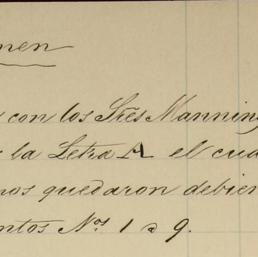 men
con los Sres Manning
la Letra A el cua
nos quedaron debien
ntos Nos 1 a 9.